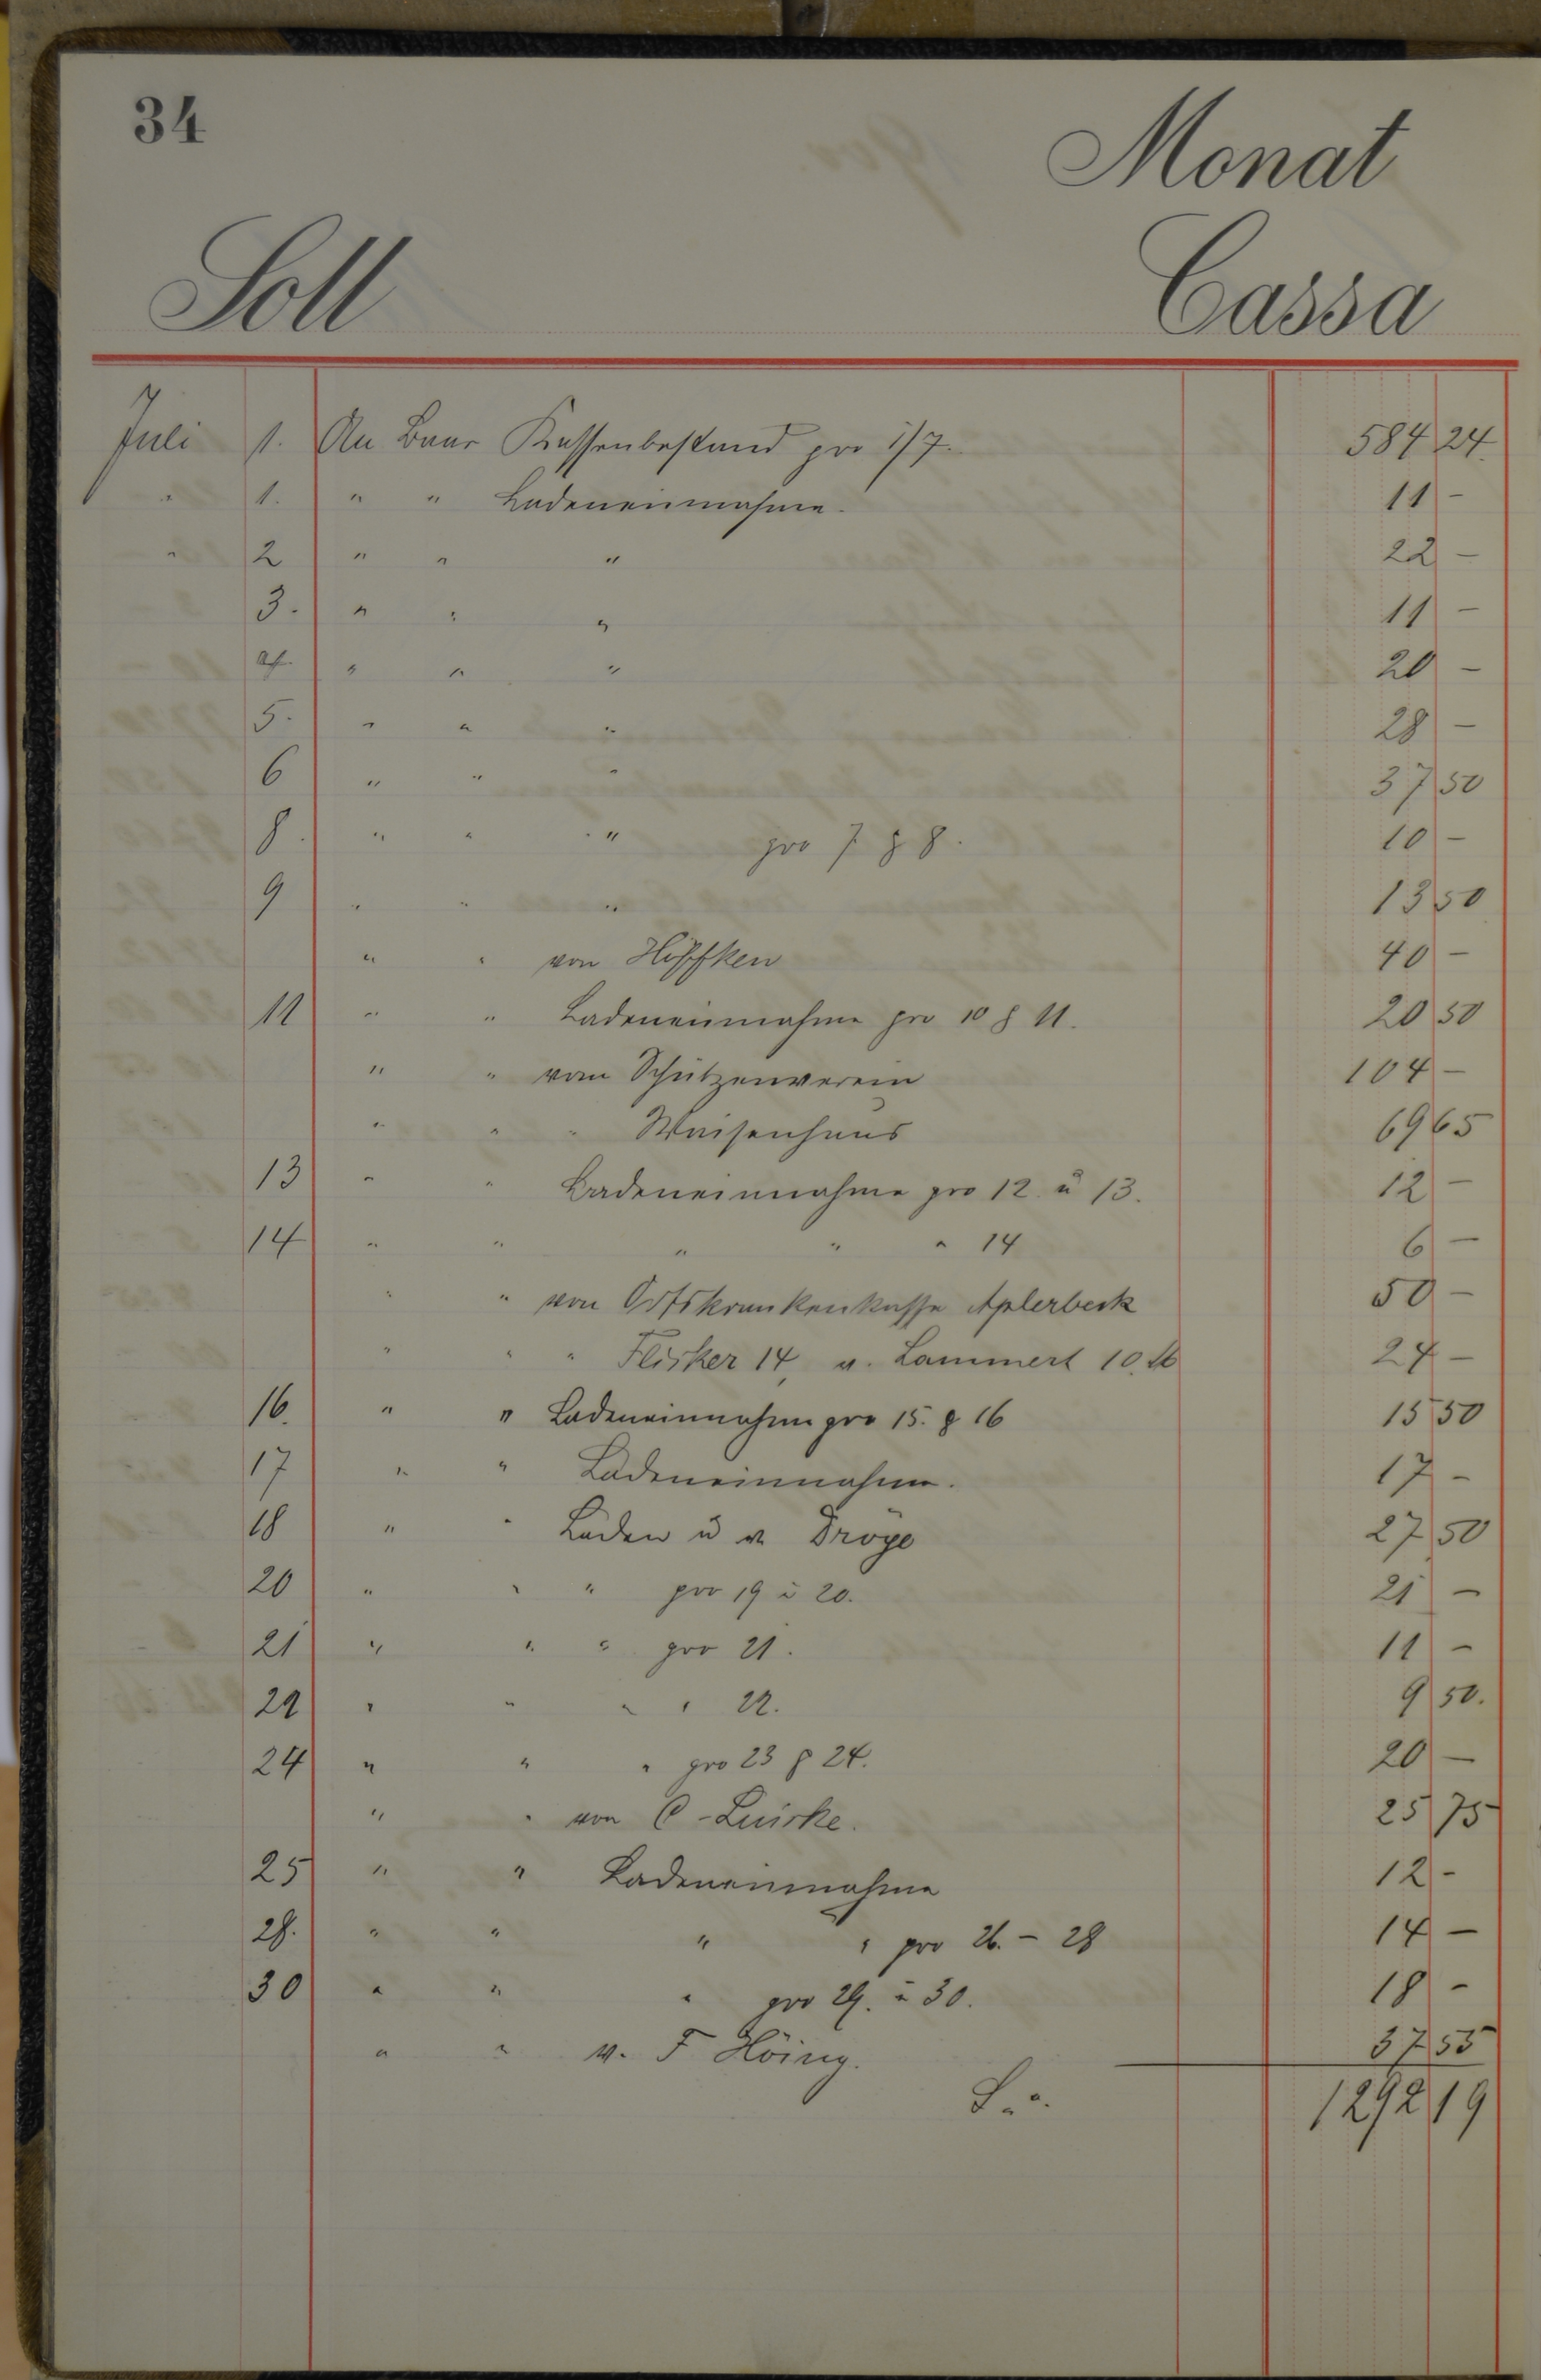 34
Monat
Soll Cassa
Juli 1. An Baar Kassenbestand pro 1/7. 584 24.
" 1. " " Ladeneinnahme. 11 -
" 2 " " " 22 -
3. " " " 11 -
4. " " " 20 -
5. " " " 28 -
6 " " " 37 50
8. " " " pro 7 & 8. 10 -
9 " " " 13 50
" " von Höffken 40 -
11 " " Ladeneinnahme pro 10 & 11. 20 50
" " vom Schützenverein 104 -
" " " Waisenhaus 69 65
13 " " Ladeneinnahme pro 12. u 13. 12 -
14 " " " " " 14 6 -
" " von Ortskrankenkasse Aplerbeck 50 -
" " " Flisker 14, u. Lammert 10. M 24 -
16. " " Ladeneinnahme pro 15. & 16 15 50
17 " " Ladeneinnahme. 17 -
18 " " Laden u v Dröge 27 50
20 " " " pro 19 u 20. 21 -
21 " " " pro 21. 11 -
22 " " " " 22. 9 50.
24 " " " pro 23 & 24. 20 -
" " von C. Luirke. 25 75
25 " " Ladeneinnahme 12 -
28. " " " " pro 26. - 28 14 -
30 " " " pro 29. u 30. 18 -
" " v. F Höing. 37 55
1292 19